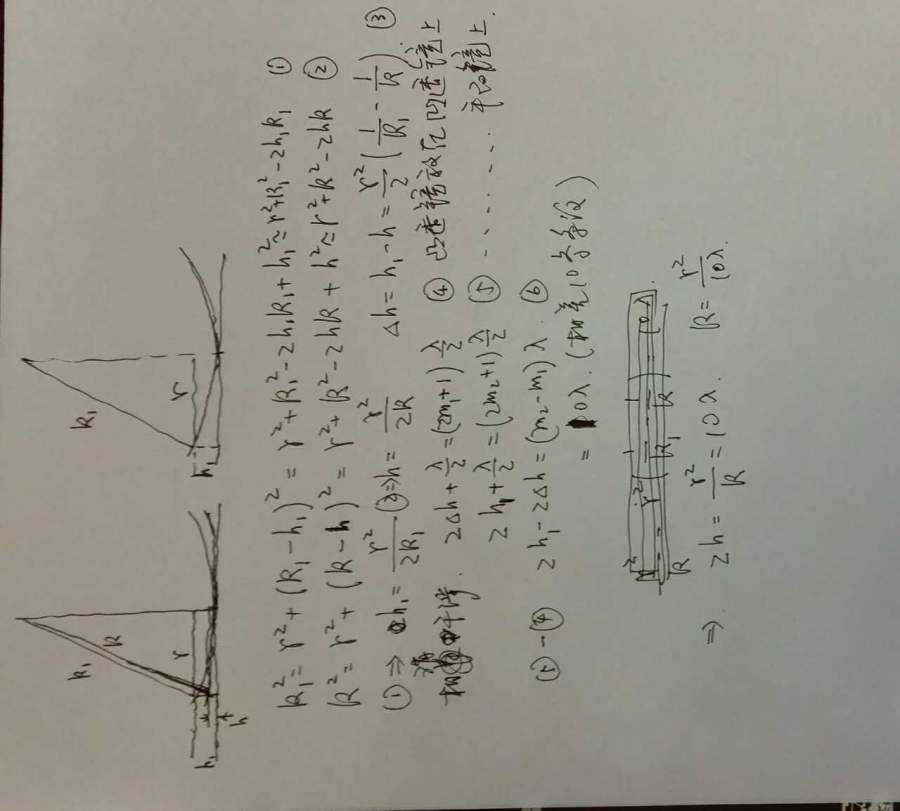 R₁ R h₁ h r
R₁ h₁ r
R₁² = r² + (R₁ - h₁)² = r² + R₁² - 2h₁R₁ + h₁² ≈ r² + R₁² - 2h₁R₁ ①
R² = r² + (R - h)² = r² + R² - 2hR + h² ≈ r² + R² - 2hR ②
① ⇒ h₁ = r²/2R₁ ② ⇒ h = r²/2R Δh = h₁ - h = r²/2 (1/R₁ - 1/R) ③
干涉. 2Δh + λ/2 = (2m₁+1) λ/2 ④ 凸透镜放在凹透镜上
2h₁ + λ/2 = (2m₂+1) λ/2 ⑤ - - - - - - - 平凹镜上.
⑤ - ④ 2h₁ - 2Δh = (m₂ - m₁) λ ⑥
= 10λ. (相差10条条纹)
⇒ 2h = r²/R = 10λ. R = r²/10λ.